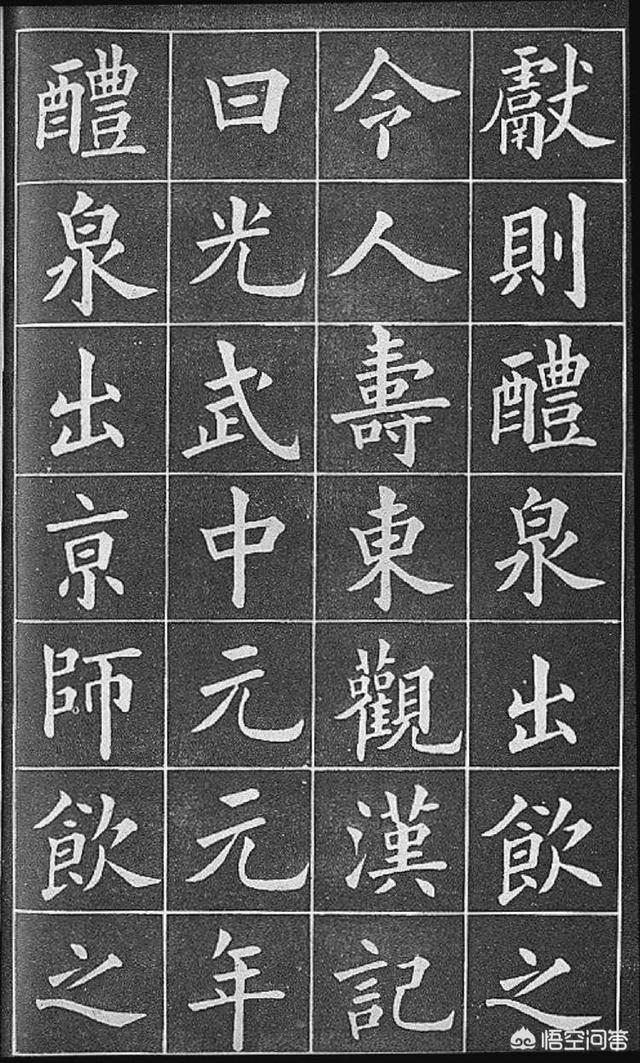 獻則醴泉出飲之
令人壽東觀漢記
曰光武中元元年
醴泉出京師飲之
悟空问答